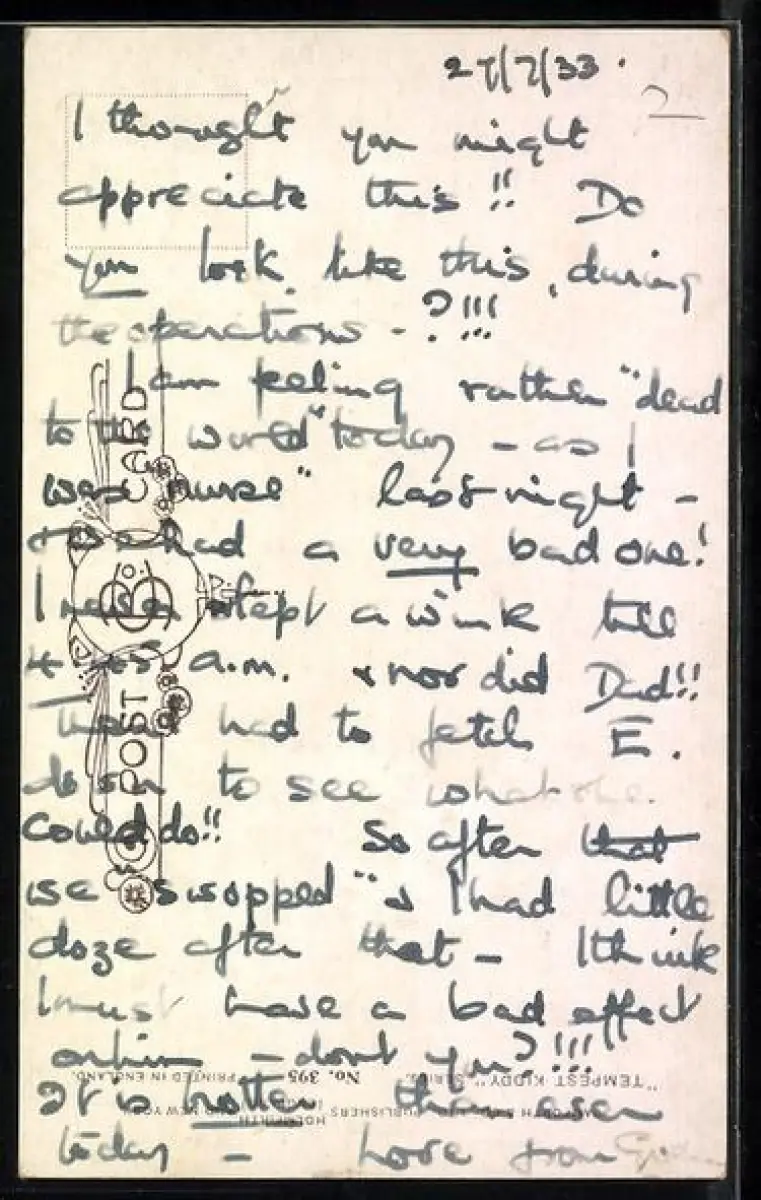 27/7/33.
2
I thought you might
appreciate this!! Do
you look like this, during
the operations - ?!!!
I am feeling rather "dead
to the world" today - as I
was "nurse" last night -
had a very bad one!
I never slept a wink till
4 a.m. & nor did Dad!!
Then had to fetch E.
down to see what she
could do!! So after that
we "swopped" & I had little
doze after that - I think
I must have a bad effect
on him - dont you?!!!
It is rotten
today - Love from
POST CARD
"TEMPEST KIDDY" SERIES. No. 395 PRINTED IN ENGLAND.
PUBLISHERS HOLMFIRTH NEW YORK